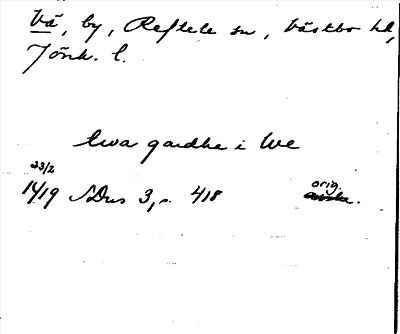 Vä, by, Reftele sn, Västbo hd,
Jönk. l.
twa gardhe i We
23/2
1419 SDns 3, s. 418 orig.